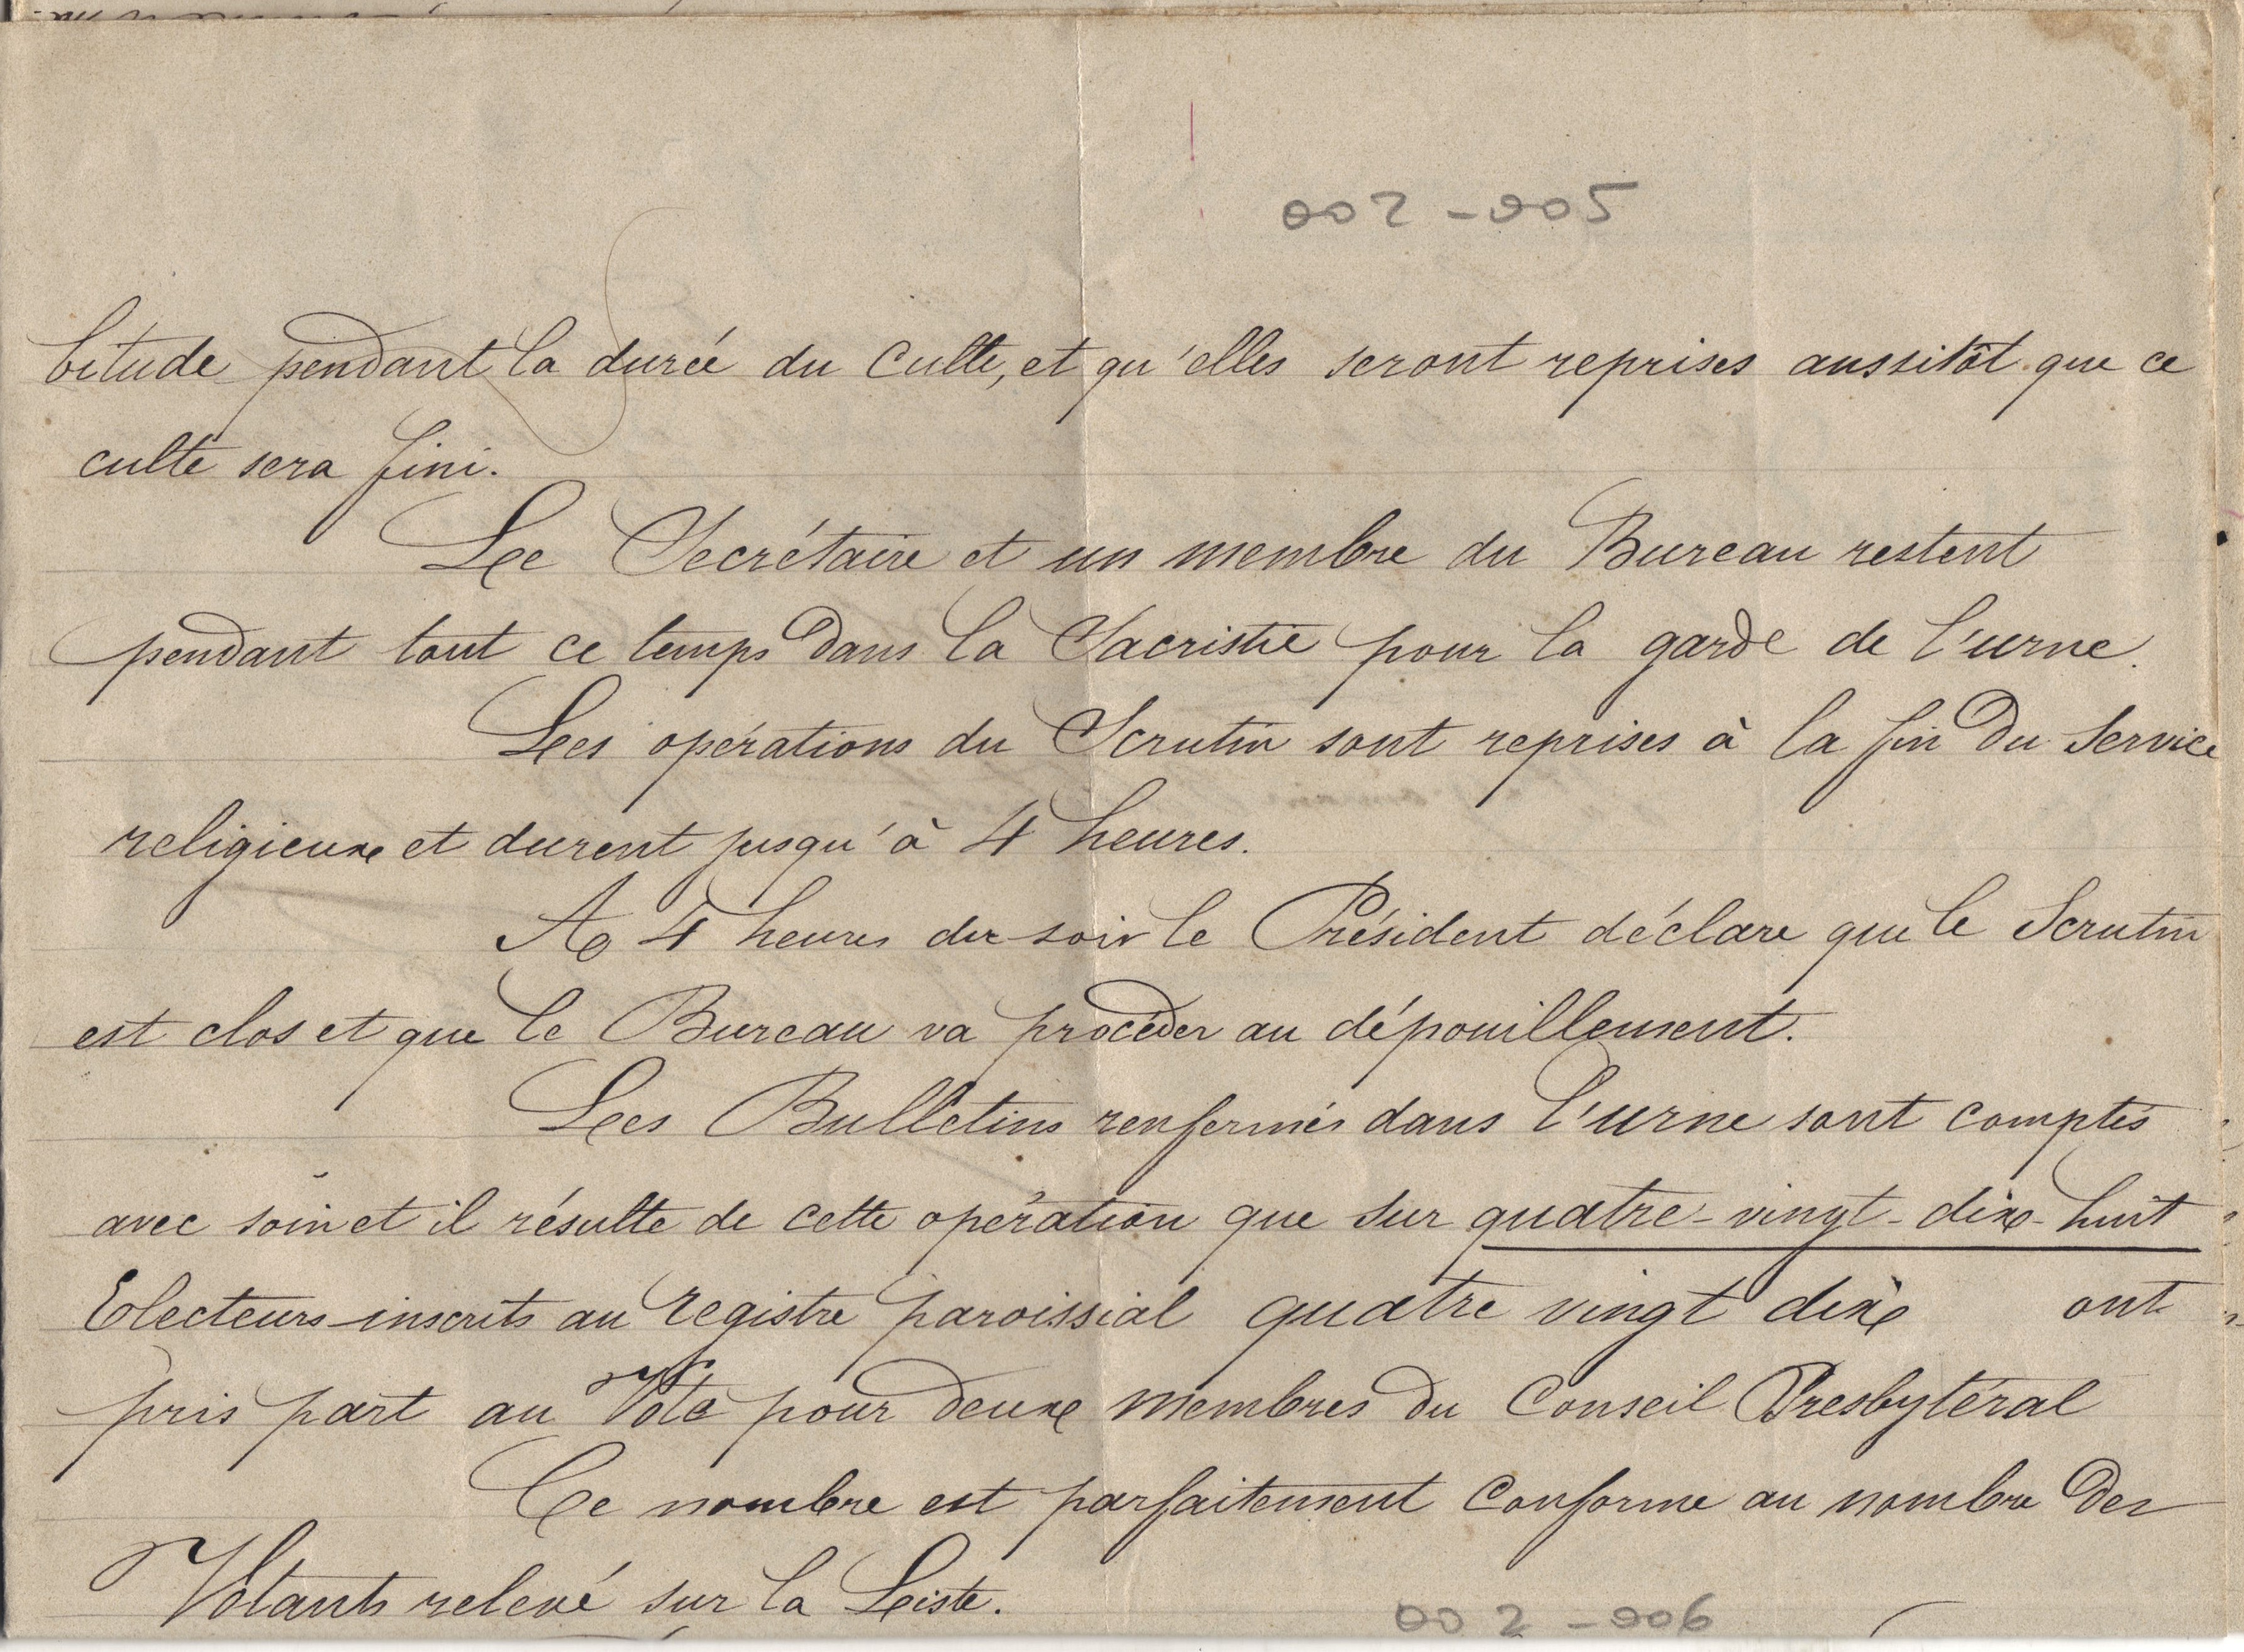 002-005
bitude pendant la durée du Culte, et qu'elles seront reprises aussitôt que ce
culte sera fini.
Le Secrétaire et un membre du Bureau restent
pendant tout ce temps dans la Sacristie pour la garde de l'urne.
Les opérations du Scrutin sont reprises à la fin du Service
religieux et durent jusqu'à 4 heures.
A 4 heures du soir le Président déclare que le Scrutin
est clos et que le Bureau va procéder au dépouillement.
Les Bulletins renfermés dans l'urne sont comptés
avec soin et il résulte de cette opération que sur quatre-vingt-dix-huit
Electeurs inscrits au registre paroissial quatre vingt dix ont
pris part au Vote pour deux membres du Conseil Presbytéral
Ce nombre est parfaitement Conforme au nombre des
Votants relevé sur la Liste.
002-006